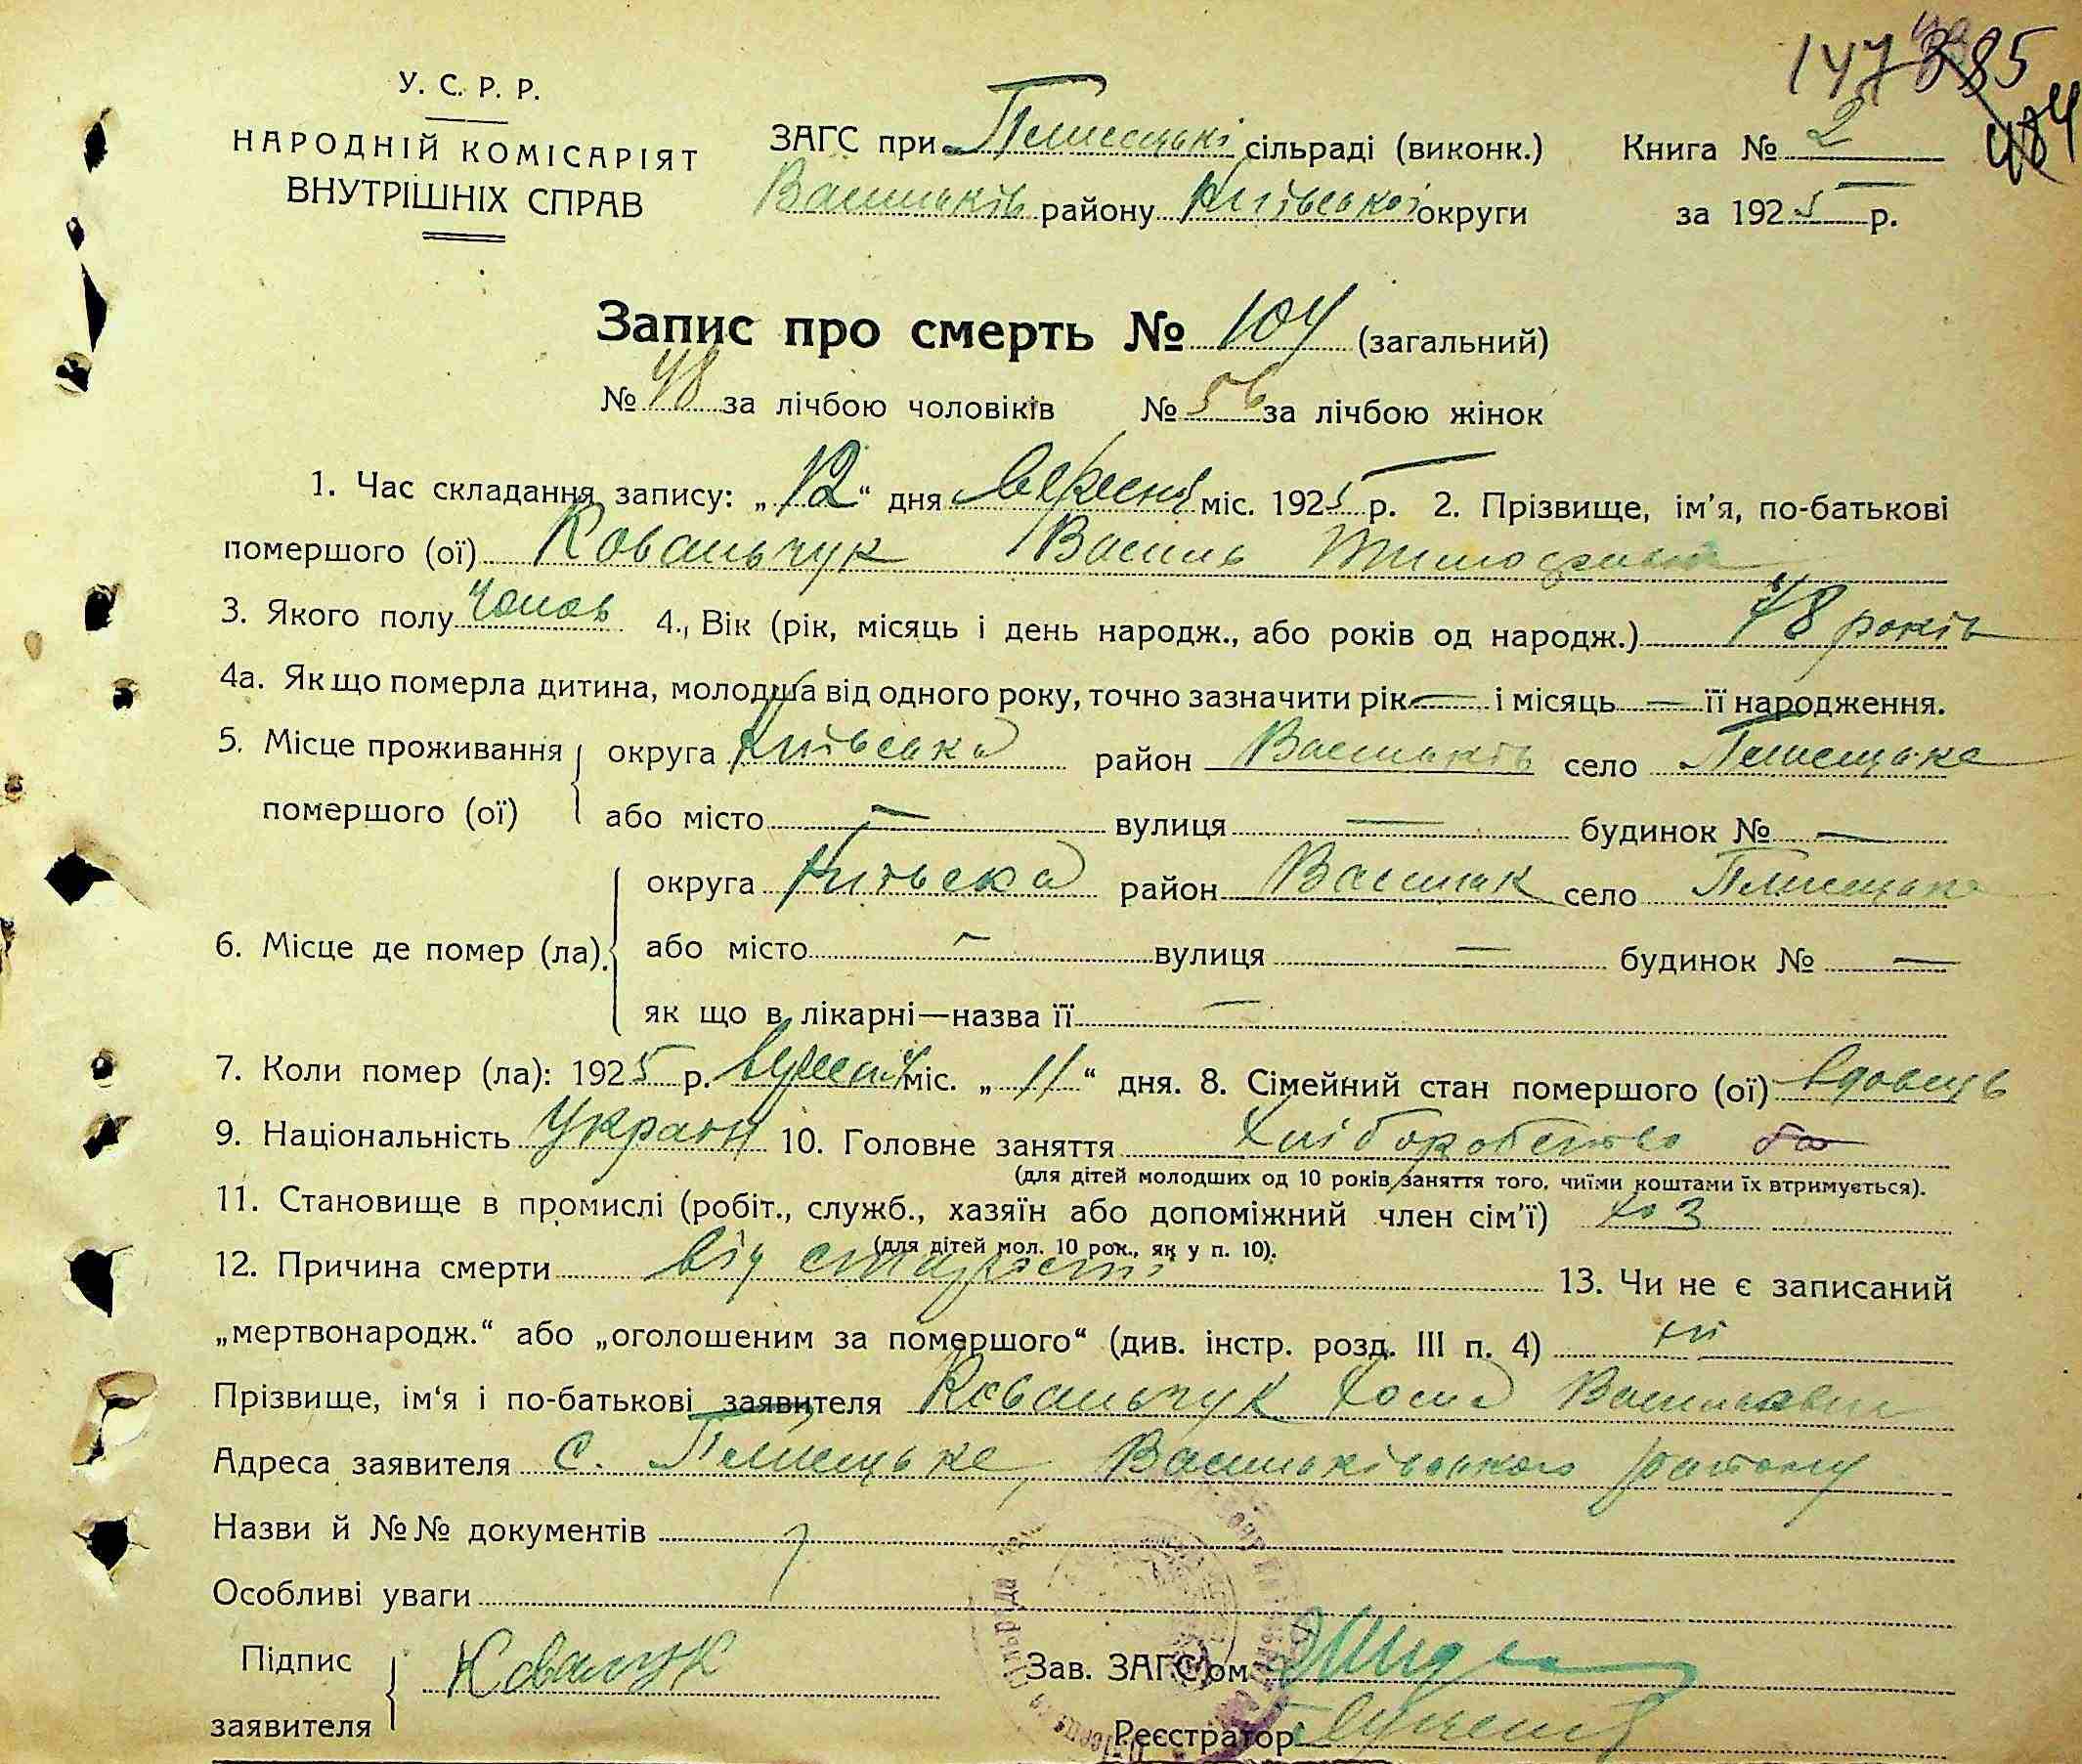 147 385
404
У. С. Р. Р.
НАРОДНІЙ КОМІСАРІЯТ
ВНУТРІШНІХ СПРАВ
ЗАГС при Плисецькі сільраді (виконк.)
Васильків району Київської округи
Книга № 2
за 1925 р.
Запис про смерть № 104 (загальний)
№ 48 за лічбою чоловіків № 56 за лічбою жінок
1. Час складання запису: „12“ дня вересня міс. 1925 р. 2. Прізвище, ім'я, по-батькові
помершого (ої) Ковальчук Василь
3. Якого полу Чолов 4. Вік (рік, місяць і день народж., або років од народж.) 78 років
4а. Якщо померла дитина, молодша від одного року, точно зазначити рік — і місяць — її народження.
5. Місце проживання помершого (ої) округа Київська район Васильків село Плисецьке
або місто — вулиця — будинок № —
6. Місце де помер (ла). округа Київська район Васильк село Плисецьке
або місто — вулиця — будинок № —
як що в лікарні—назва її —
7. Коли помер (ла): 1925 р. вересня міс. „11“ дня. 8. Сімейний стан помершого (ої) вдовець
9. Національність Україн 10. Головне заняття Хліборобство
(для дітей молодших од 10 років заняття того, чиїми коштами їх втримується).
11. Становище в промислі (робіт., служб., хазяїн або допоміжний член сім'ї) хоз
(для дітей мол. 10 рок., як у п. 10).
12. Причина смерти від старості 13. Чи не є записаний
„мертвонародж.“ або „оголошеним за помершого“ (див. інстр. розд. III п. 4) ні
Прізвище, ім'я і по-батькові заявителя Ковальчук
Адреса заявителя с. Плисецьке, Васильківського району
Назви й №№ документів
Особливі уваги
Підпис заявителя Ковальчук
Зав. ЗАГС'ом
Реєстратор